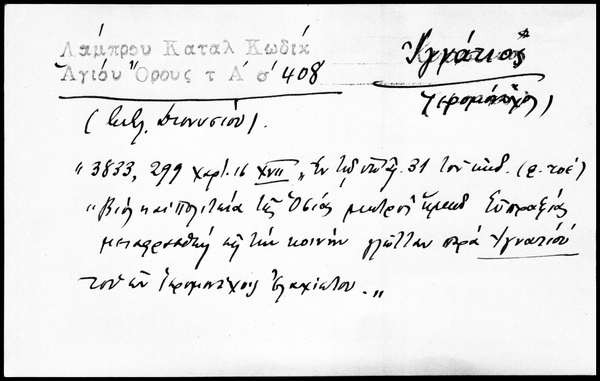 Λάμπρου Καταλ Κωδίκ
Ἁγίου Ὄρους τ Α΄ σ΄ 408
Ἰγνάτιος
(ἱερομόναχος)
(Διονυσίου).
"3833, 299 χαρτ. 16 XVII „ Ἐν 31 τοῦ κώδ.
"Βίος καὶ πολιτεία τῆς Ὁσίας μητρὸς ἡμῶν Εὐπραξίας
εἰς τὴν κοινὴν γλῶτταν παρὰ Ἰγνατίου
τοῦ ἐν ἱερομονάχοις ἐλαχίστου. „